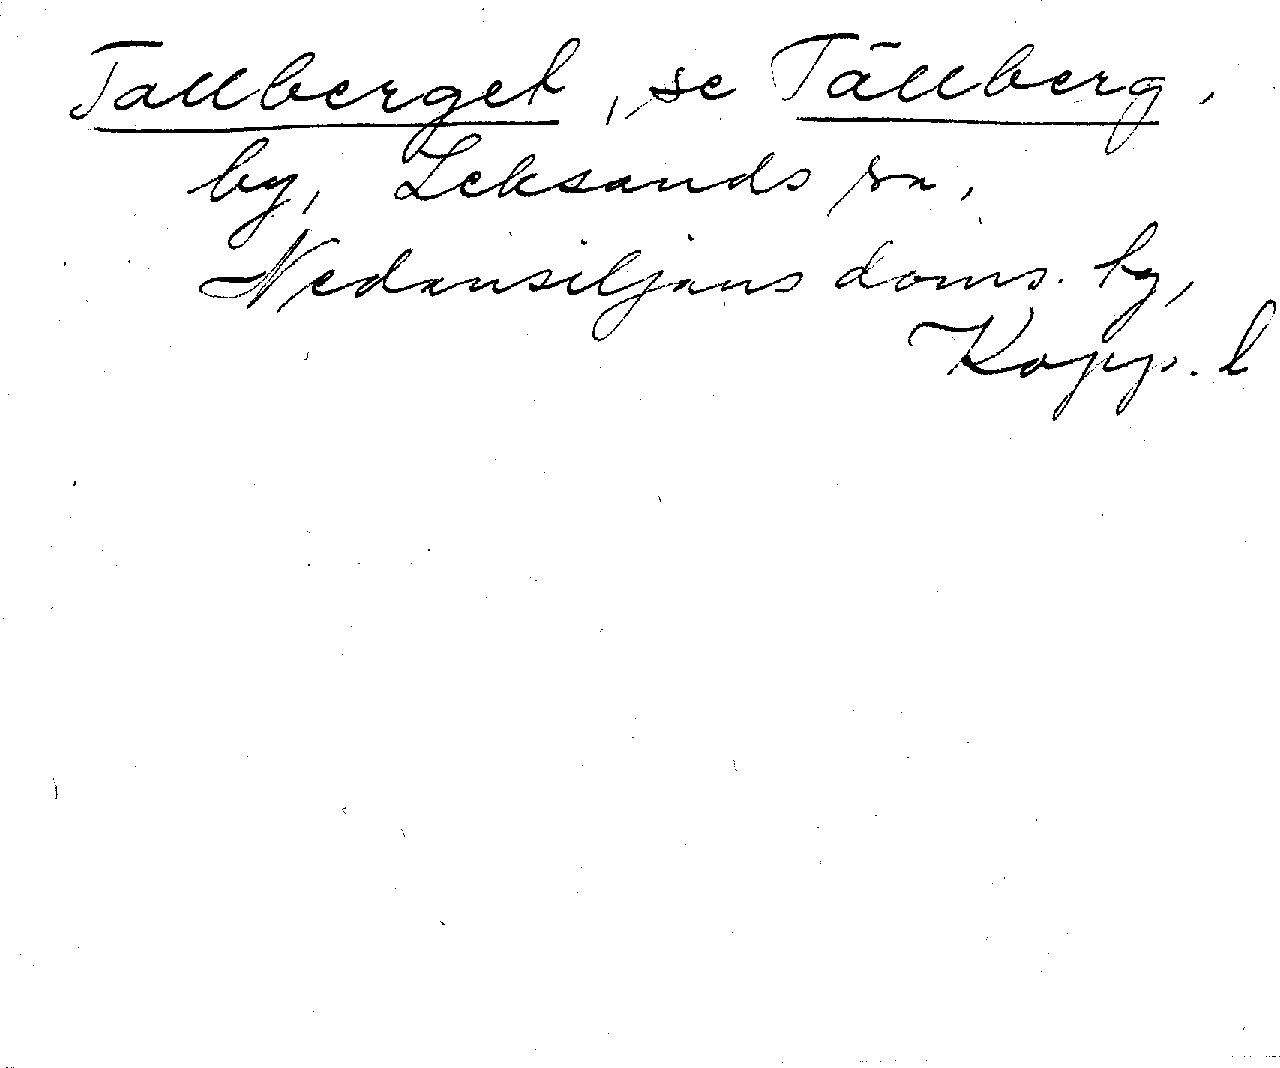 Tallberget, se Tällberg,
by, Leksands sn,
Nedansiljans doms. by,
Kopp. l